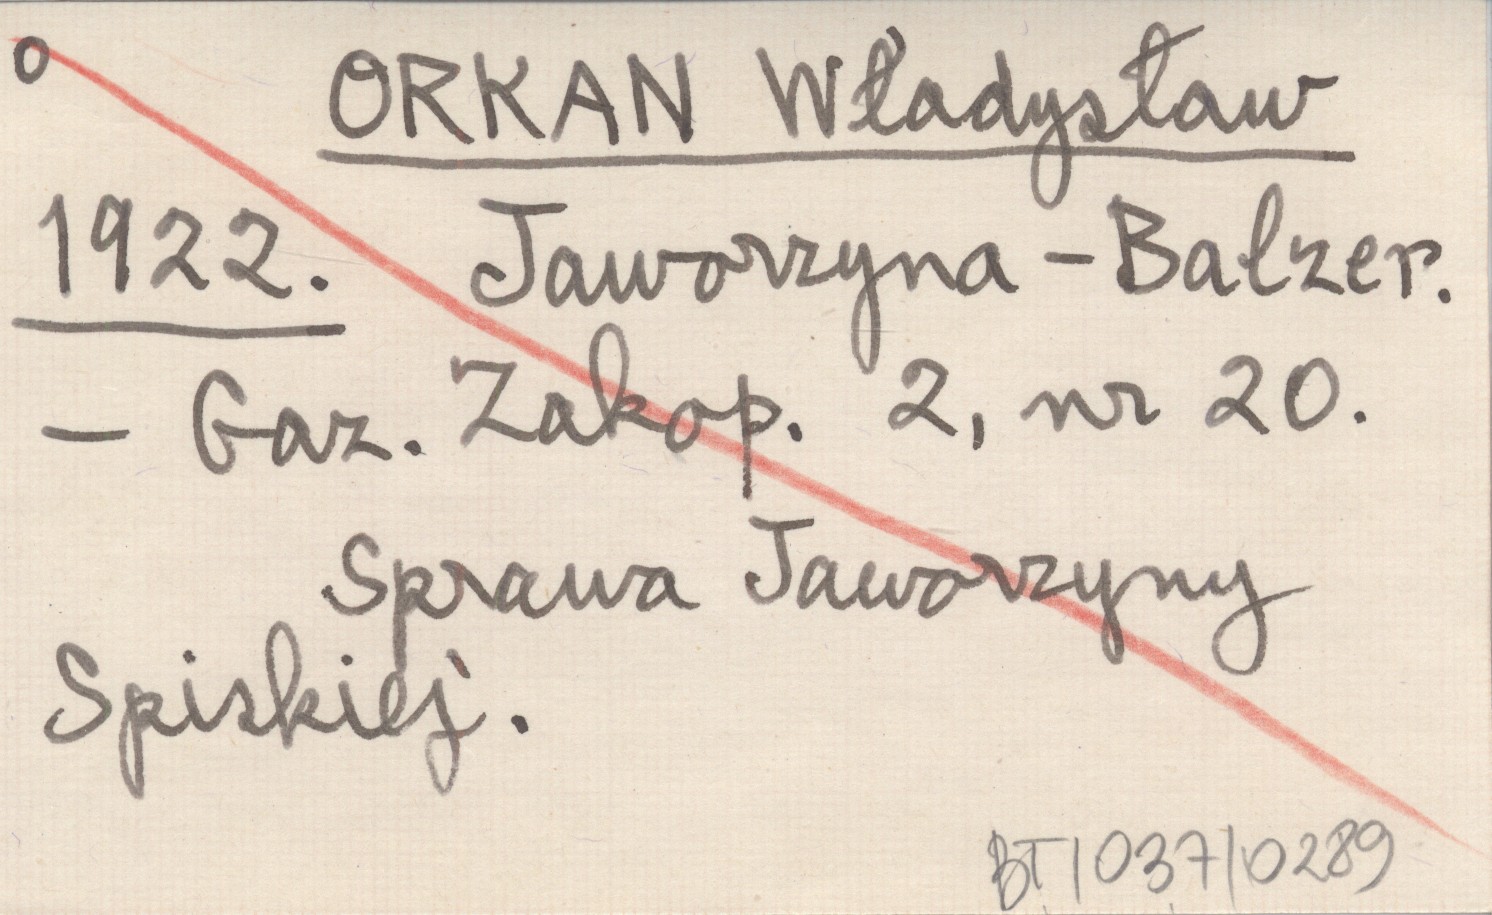 o ORKAN Władysław
1922. Jaworzyna - Balzer.
- Gaz. Zakop. 2, nr 20.
Sprawa Jaworzyny
Spiskiej.
BT/037/0289